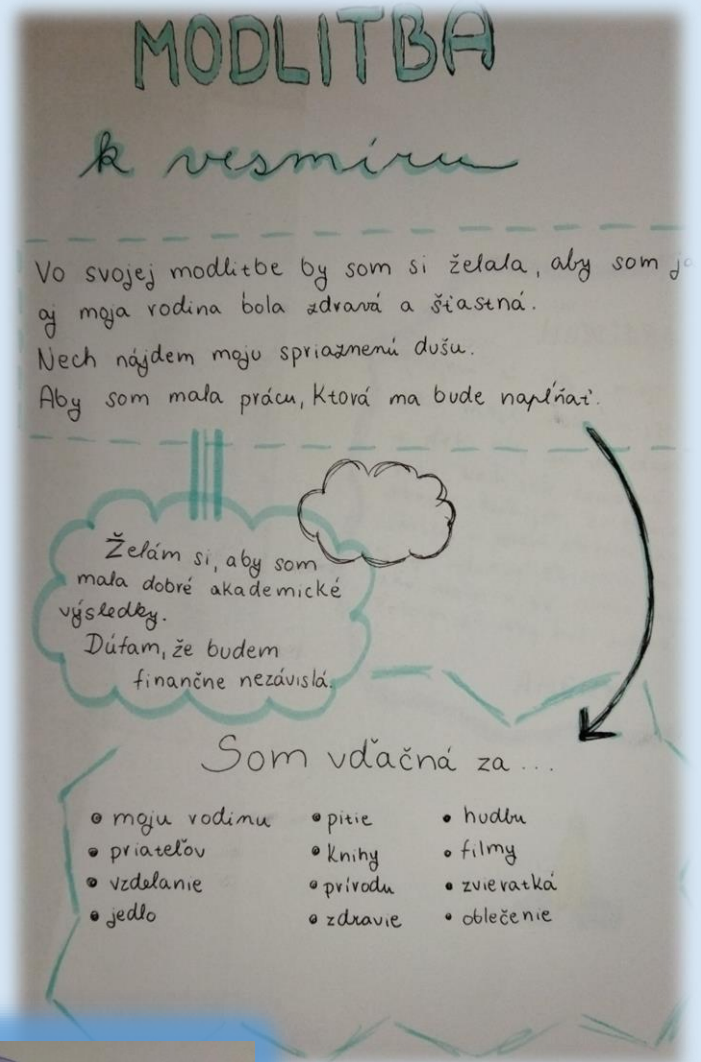 MODLITBA
k vesmíru
Vo svojej modlitbe by som si želala, aby som ja
aj moja rodina bola zdravá a šťastná.
Nech nájdem moju spriaznenú dušu.
Aby som mala prácu, Ktorá ma bude napĺňať.
Želám si, aby som
mala dobré akademické
výsledky.
Dúfam, že budem
finančne nezávislá.
Som vďačná za...
• moju rodinu
• priateľov
• vzdelanie
• jedlo
• pitie
• Knihy
• prívodu
• zdravie
• hudbu
• filmy
• zvieratká
• oblečenie